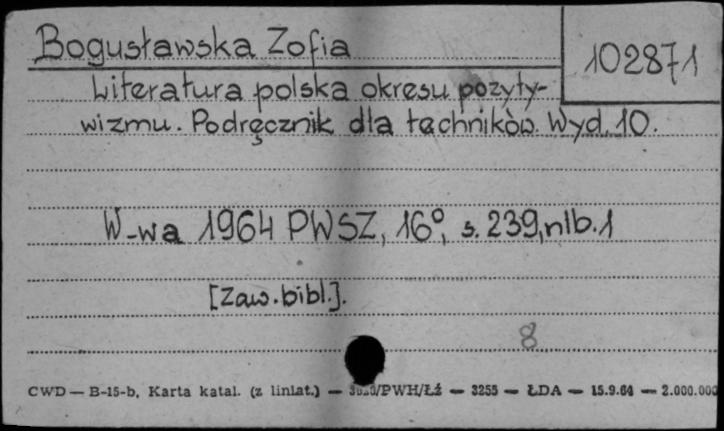 Bogusławska Zofia
102871
Literatura polska okresu pozyty-
wizmu. Podręcznik dla techników. Wyd. 10.
W-wa 1964 PWSZ, 16°, s. 239, nlb. 1
[Zaw. bibl.].
8
CWD — B-15-b, Karta katal. (z liniat.) — /PWH/Łź — 3255 — ŁDA — 15.9.64 — 2.000.000